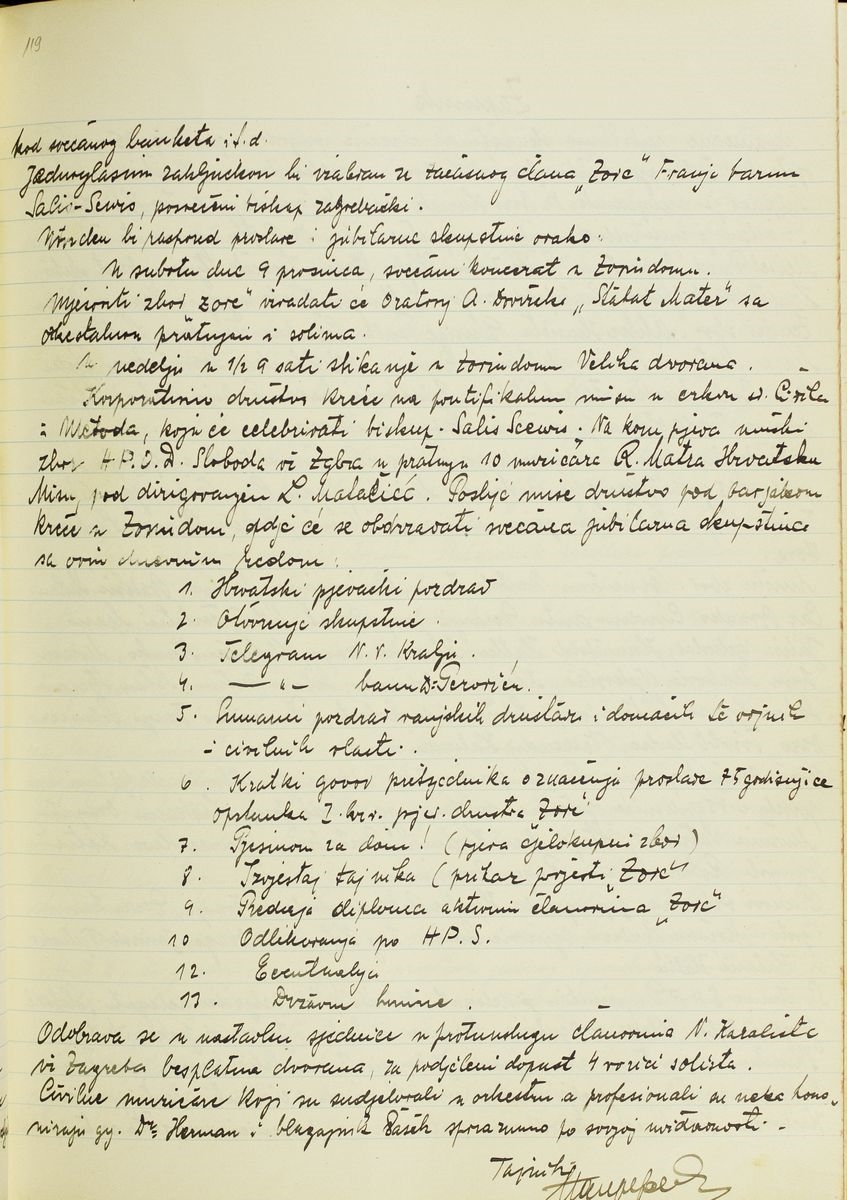 119
kod svečanog banketa i.t.d.
Jednoglasnim zaključkom bi izabran za začasnog člana „Zore" Franjo barun
Salis-Sewis, posvećeni biskup zagrebački.
Utvrđen bi raspored proslave i jubilarne skupštine ovako:
U subotu dne 9 prosinca, svečani koncerat u Zorindomu.
Mješoviti zbor „Zore" izvadati će Oratorij A. Dvořáka „Stabat Mater" sa
orkestralnom pratnjom i solima.
U nedelju u 1/2 9 sati slikanje u Zorindomu Velika dvorana.
Korporativno društvo kreće na pontifikalnu misu u crkvu sv. Ćirila
i Metoda, koju će celebrirati biskup Salis Seewis. Na koru pjeva muški
zbor H.P.D. Sloboda iz Zgba uz pratnju 10 muzičara R. Matza Hrvatsku
Misu, pod dirigovanjem L. Matačića. Poslije mise društvo pod barjakom
kreće u Zorindom, gdje će se obdržavati svečana jubilarna skupština
sa ovim dnevnim redom:
1. Hrvatski pjevački pozdrav
2. Otvorenje skupštine.
3. Telegram N. V. Kralju.
4. — „ — banu Dr Peroviću.
5. pozdrav vanjskih društava i domaćih te vojnih
i civilnih vlasti.
6. Kratki govor pretsjednika o značenju proslave 75 godišnjice
opstanka I. hrv. pjev. društva „Zore"
7. Pjesmom za dom! (pjeva cjelokupni zbor)
8. Izvještaj tajnika (prikaz povjesti „Zore"
9. Predaja diploma aktivnim članovima „Zore"
10 Odlikovanja po H.P.S.
12. Eventualija
13. Državne himne.
Odobrava se u nastavku sjednice u protuuslugu članovima N. Kazališta
iz Zagreba besplatna dvorana, za podjeljeni dopust 4 vozici solista.
Civilne muzičare koji su sudjelovali u orkestru a profesionali su neka hono-
riraju gg. Dr. Herman i blagajnik Pašek sporazumno po svojoj uviđavnosti. –
Tajnik: